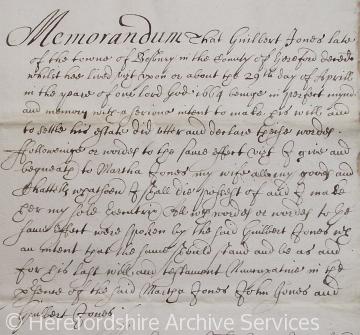 Memorandum That Guilbert Jones late
of the towne of in the County of Hereford deced
whilst hee lived upon or about the 29th day of Aprill
in the yeare of our lord god 1664 beinge in perfect mynd
and memory with a serious intent to make his will and
to settle his estate did utter and declare theise wordes
followeinge or wordes to the same effect vizt I give and
bequeath to Martha Jones my wife all my goods and
Chattells whatsoever I shall die possest of and I make
her my sole Executrix wordes or wordes to the
same effect were spoken by the said Guilbert Jones with
an intent that the same should stand and be as and
for his last will and testament Nuncupative in the
presence of the said Martha Jones John Jones and
Guilbert Jones
© Herefordshire Archive Services